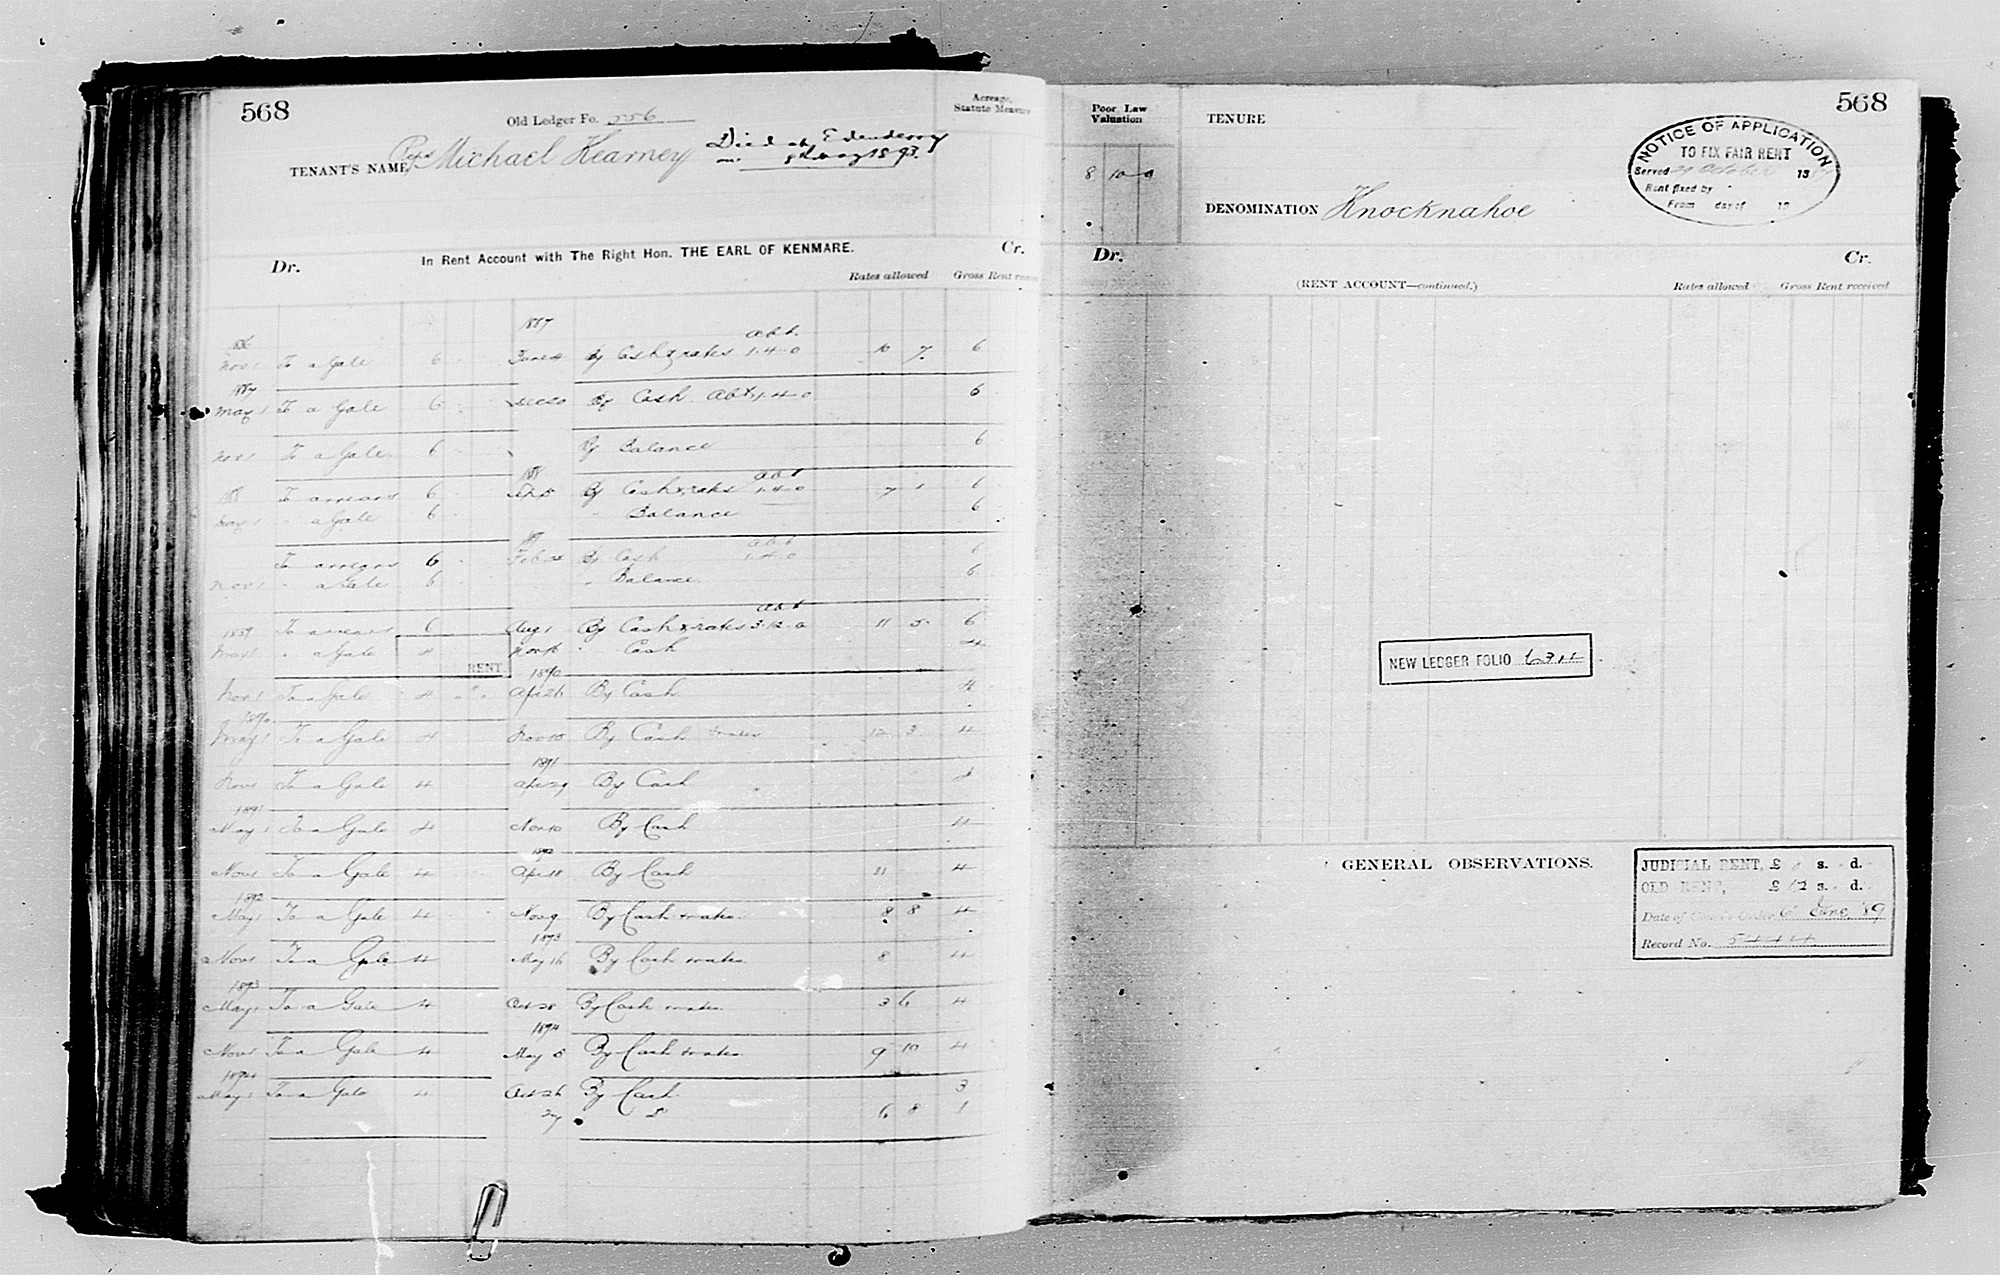 568
Old Ledger Fo. 556
Acreage, Statute Measure
TENANT'S NAME, Reps Michael Kearney
Died at Edenderry
May 1893.
In Rent Account with The Right Hon. THE EARL OF KENMARE.
Dr.
Cr.
Rates allowed
Gross Rent
1887
abt.
Nov 1 To a Gale 6 June 4 By Cash & rates 1.4.0 10 7 6
1887
May 1 To a Gale 6 Dec 20 By Cash Abt 1.4.0 6
Nov 1 To a Gale 6 By Balance 6
188 abt
To arrears 6 By Cash & rates 1.4.0 7 1 6
May 1 " a Gale 6 " Balance 6
abt
To arrears 6 Feb By Cash 1.4.0 6
Nov 1 " a Gale 6 " Balance 6
abt
1889 To arrears 6 Aug 1 By Cash & rates 3.12.0 11 5 6
May 1 " a Gale 4 Nov 16 " Cash 4
RENT.
1890
Nov 1 To a Gale 4 Apr 26 By Cash 4
1890
May 1 To a Gale 4 Nov 10 By Cash & rates 12 3 4
1891
Nov 1 To a Gale 4 Apr 29 By Cash 4
1891
May 1 To a Gale 4 Nov 10 By Cash 4
1892
Nov 1 To a Gale 4 Apr 18 By Cash 11 4
1892
May 1 To a Gale 4 Nov 9 By Cash & rates 8 8 4
1893
Nov 1 To a Gale 4 May 16 By Cash & rates 8 4
1893
May 1 To a Gale 4 Oct 28 By Cash & rates 3 6 4
1894
Nov 1 To a Gale 4 May 5 By Cash & rates 9 10 4
1894
May 1 To a Gale 4 Oct 26 By Cash 3
27 " 6 8 1
568
Poor Law Valuation
8 10 0
TENURE
NOTICE OF APPLICATION
TO FIX FAIR RENT
Served 29 October 18
Rent fixed by
From day of 18
DENOMINATION Knocknahoe
Dr.
Cr.
(RENT ACCOUNT—continued.)
Rates allowed
Gross Rent received
NEW LEDGER FOLIO
GENERAL OBSERVATIONS.
JUDICIAL RENT, £ s. d.
OLD RENT, £ 12 s. d.
Date of Court's Order 6 June '89
Record No. 5444